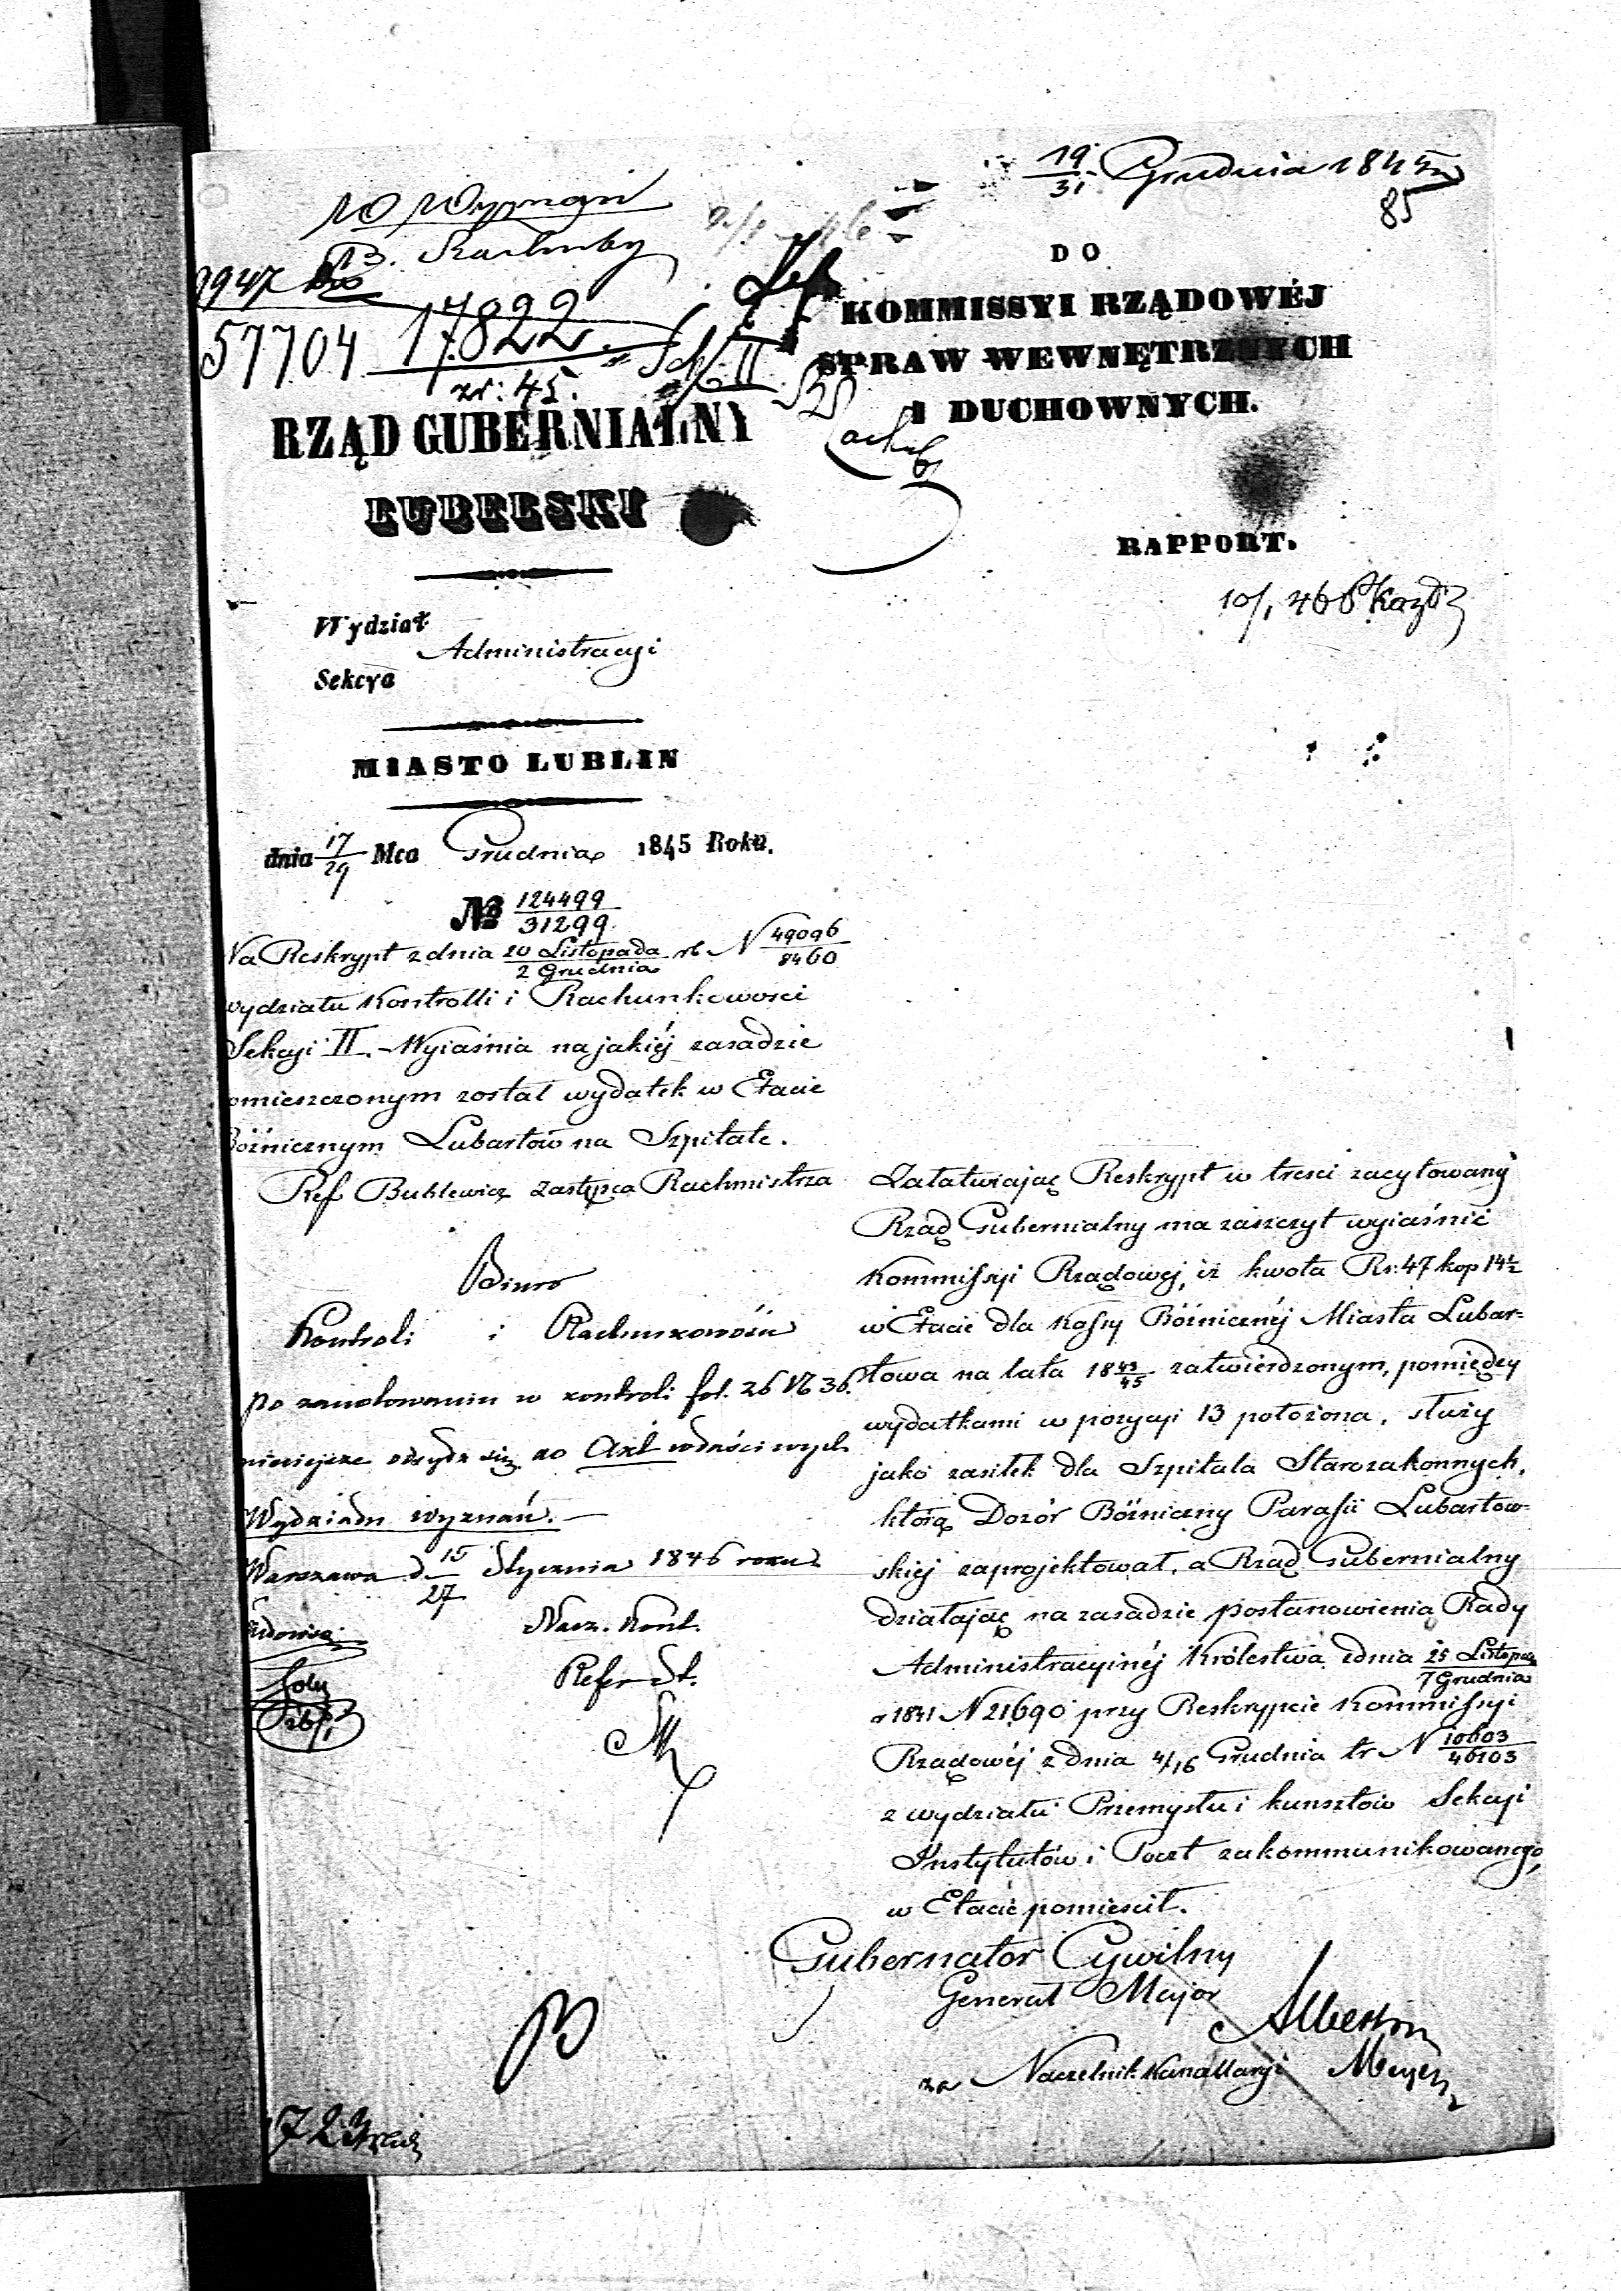 19/31 Grudnia 1845
85
W Wyznań
B. Rachuby
57704 17822
zr: 45.
Sek II
DO
KOMMISSYI RZĄDOWÉJ
SPRAW WEWNĘTRZNYCH
I DUCHOWNYCH.
RAPPORT.
RZĄD GUBERNIALNY
LUBELSKI
Wydział
Administracyi
Sekcya
MIASTO LUBLIN
dnia 17/29 Mca Grudnia 1845 Roku.
№ 124499/31299
Na Reskrypt z dnia 20 Listopada/2 Grudnia rb. N 49096/8460
wydziału Kontrolli i Rachunkowosci
Sekcyi II. Wyiaśnia na jakiéj zasadzie
omieszczonym został wydatek w Etacie
Bóźnicznym Lubartów na Szpitale.
Ref Buklewicz Zastępca Rachmistrza
Biuro
Kontroli i Rachunkowości
po zanotowaniu w kontroli fol. 26 № 36.
niniejsze odsyła się do Akt właściwych
Wydziału wyznań.
Warszawa d 15/27 Stycznia 1846 roku
Nacz. Kont.
Refer St.
Załatwiając Reskrypt w tresci zacytowany
Rząd Gubernialny ma zaszczyt wyiaśnić
Kommissyi Rządowej, iż kwota Rs. 47 kop 14½
w Etacie dla Kassy Bóźnicznéj Miasta Lubar=
towa na lata 1843/45 zatwierdzonym, pomiędzy
wydatkami w pozycyi 13 położona, służy
jako zasiłek dla Szpitala Starozakonnych,
którą Dozór Bóźniczny Parafii Lubartow=
skiej zaprojektował, a Rząd Gubernialny
działając na zasadzie postanowienia Rady
Administracyinéj Królestwa z dnia 25 Listopada/7 Grudnia
r 1841 N 21690 przy Reskrypcie Kommissyi
Rządowéj z dnia 4/16 Grudnia tr N 10603/46103
z wydziału Przemysłu i kunsztów Sekcyi
Instytutów i Poczt zakommunikowanego,
w Etacie pomiescił.
Gubernator Cywilny
Generał Major
Albertow
za Naczelnik Kancellaryi Meyer